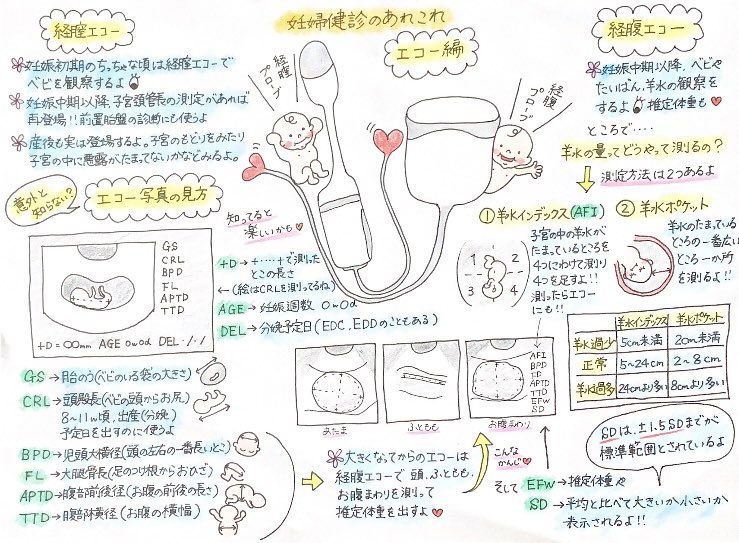 妊婦健診のあれこれ
エコー編
経腟エコー
妊娠初期のちっちゃな頃は経腟エコーで
ベビを観察するよ
妊娠中期以降、子宮頸管長の測定があれば
再登場!!前置胎盤の診断にも使うよ
産後も実は登場するよ。子宮のもどりをみたり
子宮の中に悪露がたまってないかなどみるよ。
経腟
プローブ
経腹
プローブ
経腹エコー
妊娠中期以降、ベビや
たいばん、羊水の観察を
するよ 推定体重も
ところで・・・・
羊水の量ってどうやって測るの?
測定方法は2つあるよ
①羊水インデックス(AFI)
子宮の中の羊水が
たまっているところを
4つにわけて測り
4つを足すよ!!
測ったらエコー
にも!!
1 3
2 4
②羊水ポケット
羊水のたまっている
ところの一番広い
ところ一か所
を測るよ!!
羊水インデックス 羊水ポケット
羊水過少 5cm未満 2cm未満
正常 5~24cm 2~8cm
羊水過多 24cmより多い 8cmより多い
SDは、±1.5SDまでが
標準範囲とされているよ
意外と
知らない?
エコー写真の見方
GS
CRL
BPD
FL
APTD
TTD
+D=〇〇mm AGE 0w0d DEL・/・/
知ってると
楽しいかも
+D→+‥‥+で測った
とこの長さ
←(絵はCRLを測ってるね)
AGE→妊娠週数 0w0d
DEL→分娩予定日(EDC,EDDのこともある)
GS→胎のう(ベビのいる袋の大きさ)
CRL→頭殿長(ベビの頭からお尻)
8~11w頃、出産(分娩)
予定日を出すのに使うよ
BPD→児頭大横径(頭の左右の一番長いとこ)
FL→大腿骨長(足のつけ根からおひざ)
APTD→腹部前後径(お腹の前後の長さ)
TTD→腹部横径(お腹の横幅)
あたま
ふともも
お腹まわり
AFI
BPD
FL
APTD
TTD
EFW
SD
大きくなってからのエコーは
経腹エコーで頭、ふともも、
お腹まわりを測って
推定体重を出すよ
こんな
かんじ
そして
EFW→推定体重
SD→平均と比べて大きいか小さいか
表示されるよ!!